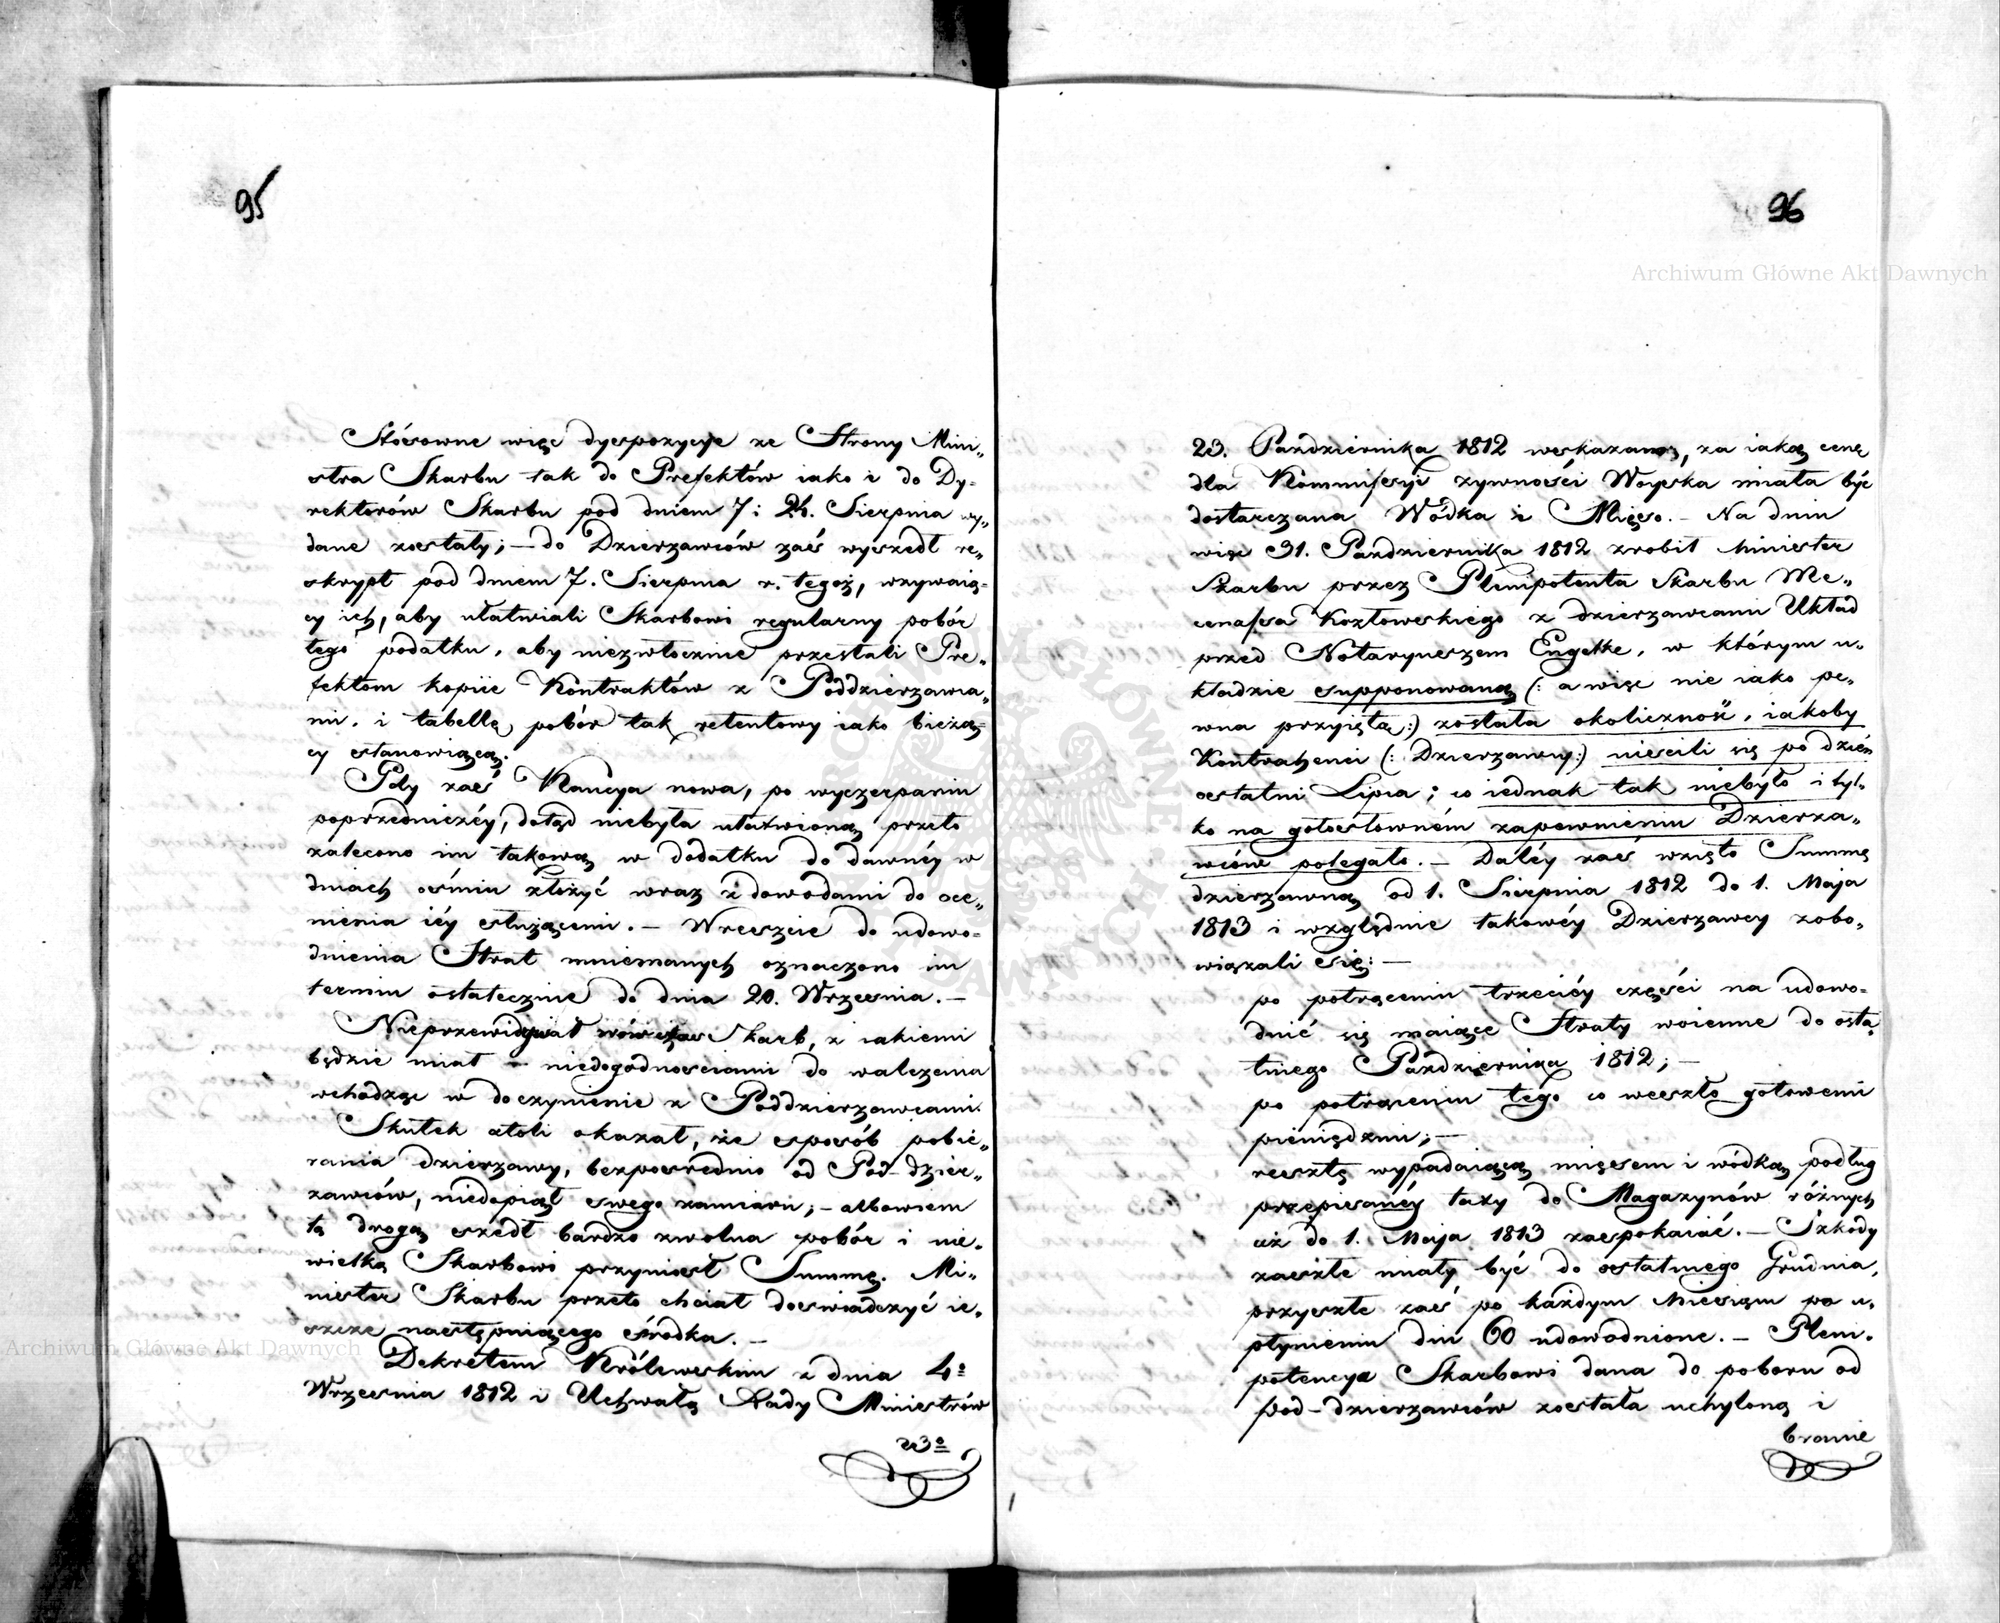 95
Stósowne więc dyspozycye ze Strony Mini„
stra Skarbu tak do Prefektów iako i do Dy„
rektorów Skarbu pod dniem 7 i 24. Sierpnia wy„
dane zostały; — do Dzierzawców zaś wyszedł re„
skrypt pod dniem 7. Sierpnia r. tegoż, wzywaią„
cy ich, aby ułatwiali Skarbowi regularny pobór
tego podatku, aby niezwłocznie przesłali Pre„
fektom kopiie Kontraktów z Poddzierzawca„
mi, i tabellę pobór tak retentowy iako bieżą„
cy stanowiącą.
Gdy zaś Kaucya nowa, po wyczerpaniu
poprzedniczéy, dotąd niebyła ułatwioną przeto
zalecono im takową w dodatku do dawnéy w
dniach ośmiu złożyć wraz z dowodami do oce„
nienia iéy służącemi. — Wreszcie do udowo„
dnienia Strat mniemanych oznaczono im
termin ostatecznie do dnia 20. Września. —
Nieprzewidywał wówczas Skarb, z iakiemi
będzie miał — niedogodnościami do walczenia
wchodząc w do czynienie z Poddzierzawcami.
Skutek atoli okazał, że sposób pobie„
rania dzierzawy, bezpośrednio od Pod-dzier„
zawców, niedopiął swego zamiaru; — albowiem
tą drogą szedł bardzo zwolna pobór i nie„
wielką Skarbowi przyniosł Summę. Mi„
nister Skarbu przeto chciał doświadczyć ie„
szcze następuiącego środka. —
Dekretem Królewskim z dnia 4º
Września 1812 i Uchwałą Rady Ministrów
23º
96
23. Pazdziernika 1812 wskazaną, za iaką cenę
dla Kommissyi zywności Woyska miała być
dostarczana Wódka i Mięso. — Na dniu
więc 31. Pazdziernika 1812 zrobił Minister
Skarbu przez Plenipotenta Skarbu Me„
cenassa Kozłowskiego z dzierzawcami Układ
przed Notaryuszem Engelke, w którym u„
kładzie supponowaną (: a więc nie iako pe„
wna przyięta :) została okoliczność, iakoby
Kontrahenci (: Dzierzawcy :) uiścili się po dzień
ostatni Lipca; co iednak tak niebyło i tyl„
ko na gołosłowném zapewnieniu Dzierza„
wców polegało. — Daléy zaś wzięto Summę
dzierzawną od 1. Sierpnia 1812 do 1. Maja
1813 i względnie takowéy Dzierzawcy zobo„
wiązali się: —
po potrąceniu trzeciéy części na udowo„
dnić się maiące Straty woienne do osta„
tniego Pazdziernika 1812; —
po potrąceniu tego co weszło gotowemi
pieniędzmi; —
resztę wypadaiącą mięsem i wódką podług
przepisanéy taxy do Magazynów różnych
aż do 1. Maja 1813 zaspokaiać. — Szkody
zaszłe miały być do ostatniego Grudnia,
przyszłe zaś po każdym Miesiącu po u„
płynieniu dni 60 udowodnione. — Pleni„
potencya Skarbowi dana do poboru od
Pod-dzierzawców została uchyloną i
bronie